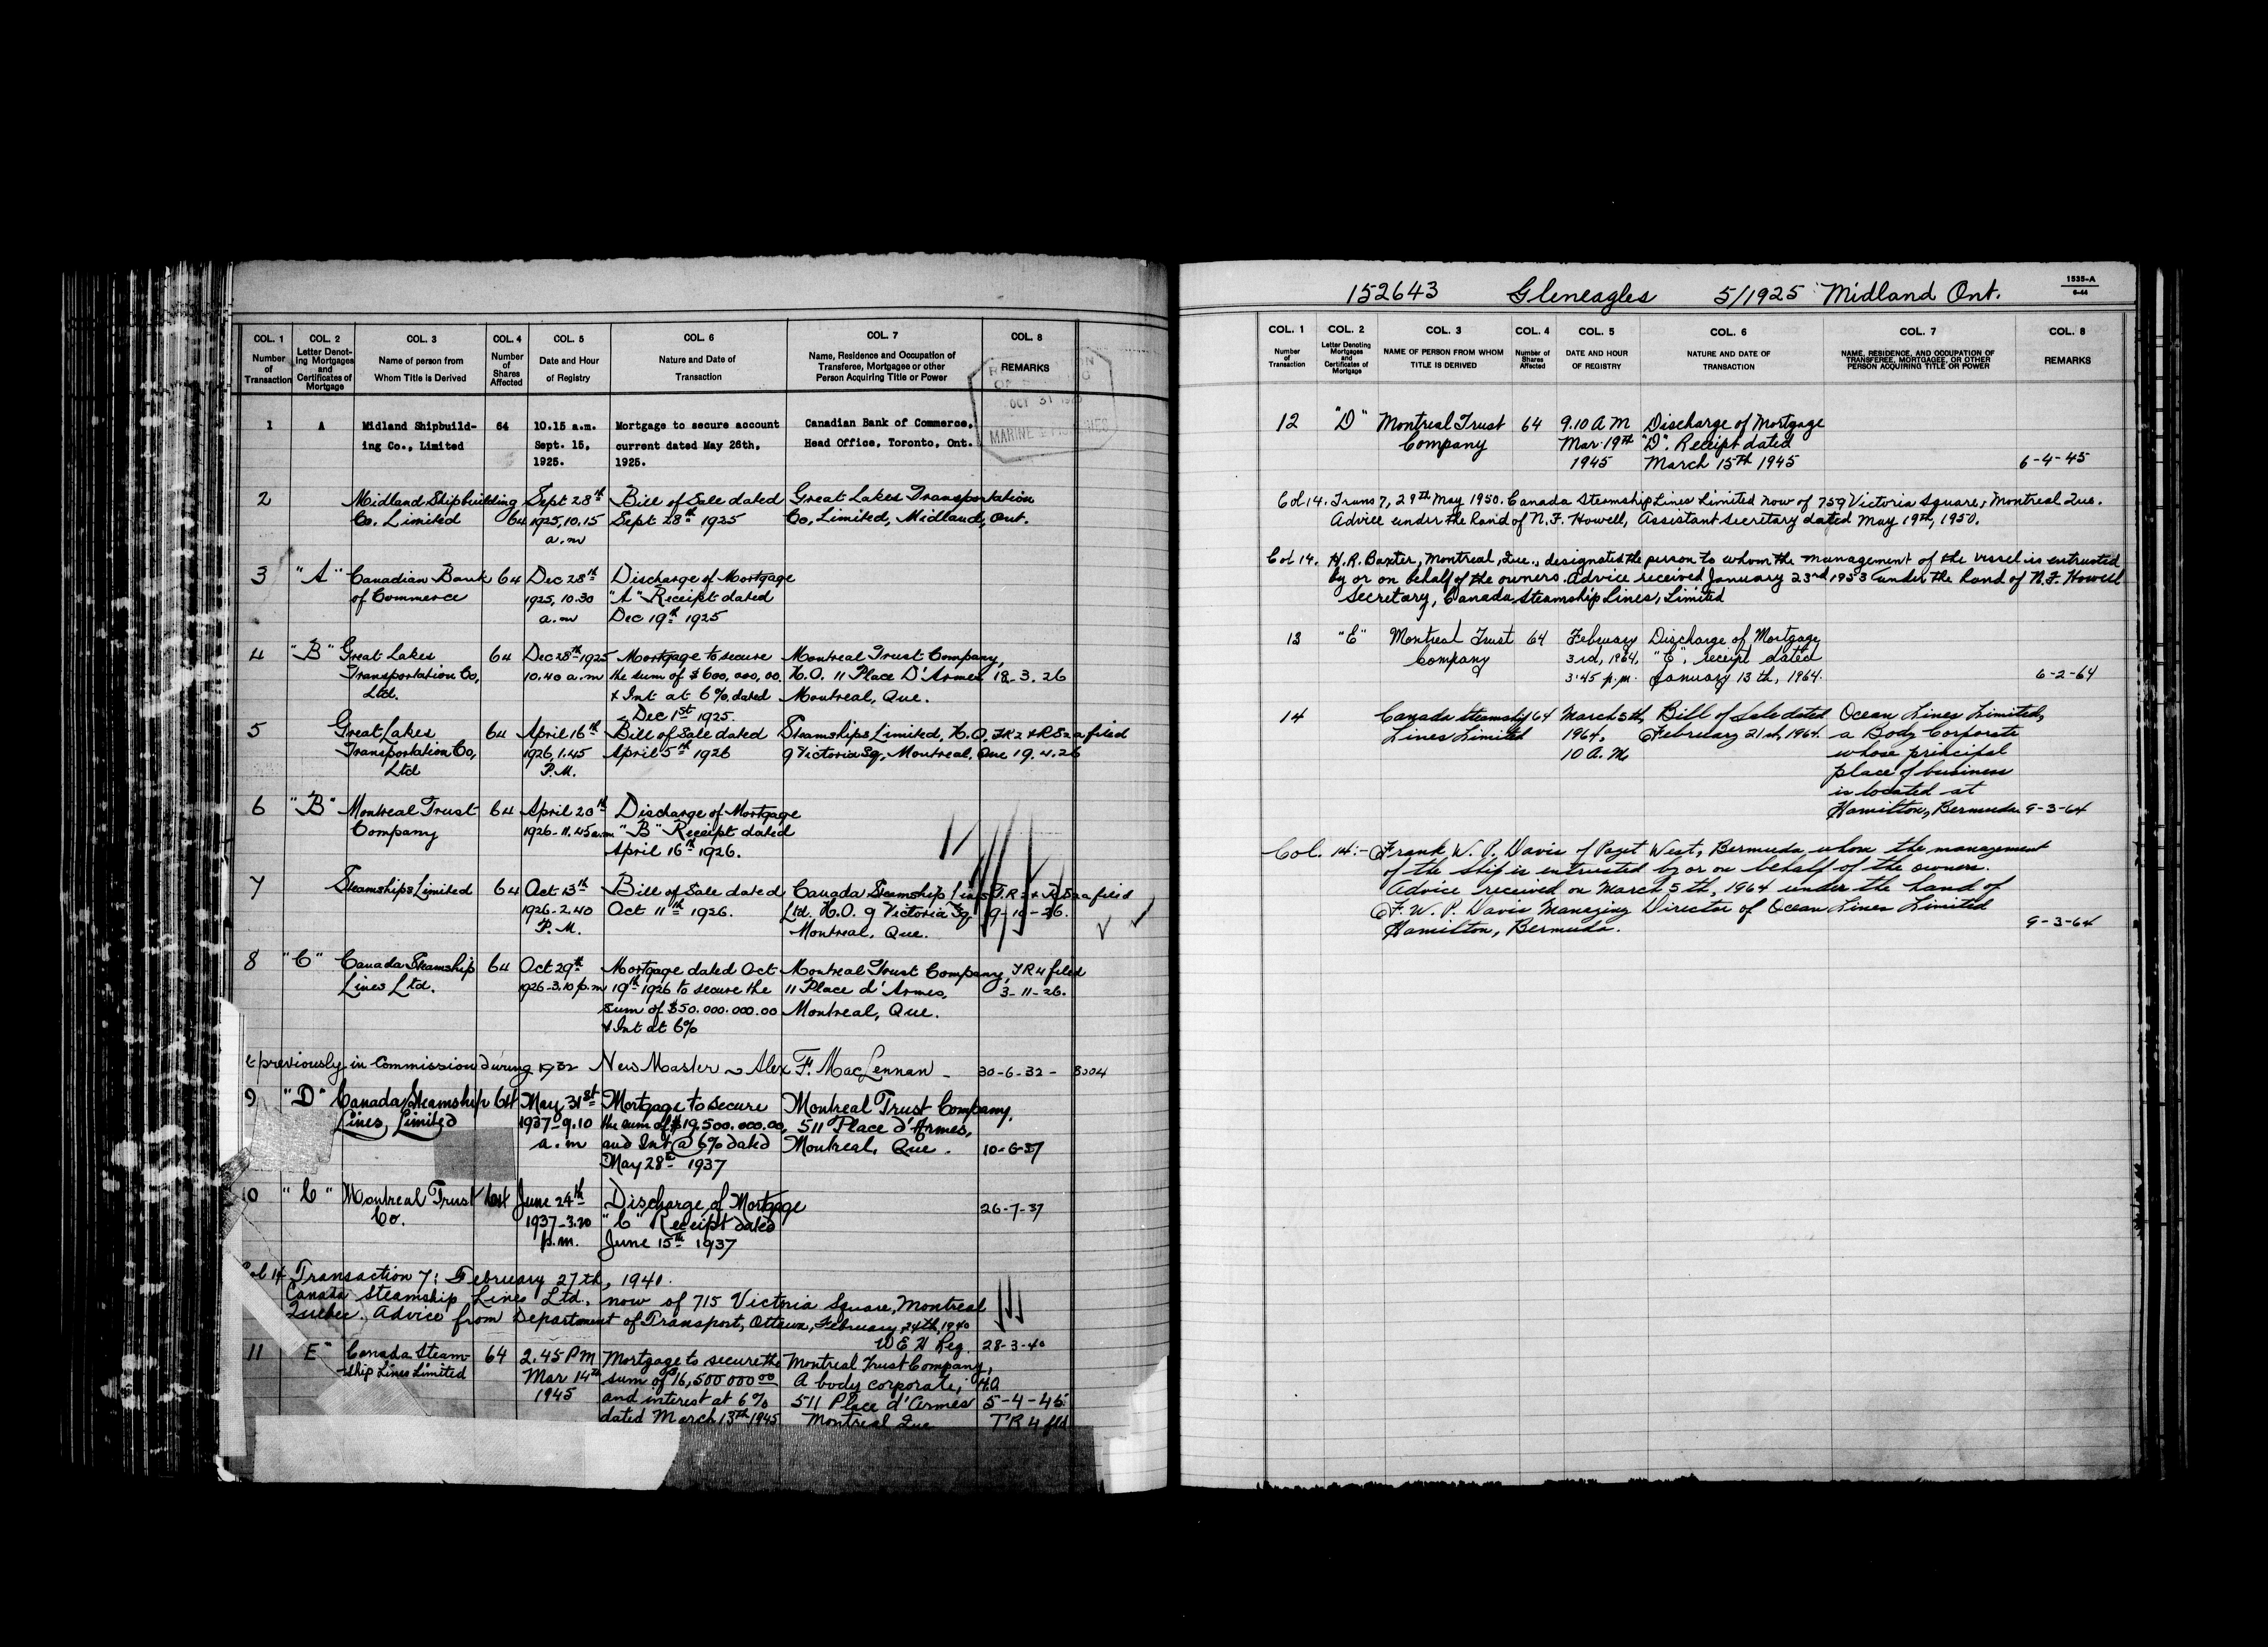 COL. 1 COL. 2 COL. 3 COL. 4 COL. 5 COL. 6 COL. 7 COL. 8
Number of Transaction
Letter Denoting Mortgages and Certificates of Mortgage
Name of person from Whom Title is Derived
Number of Shares Affected
Date and Hour of Registry
Nature and Date of Transaction
Name, Residence and Occupation of Transferee, Mortgagee or other Person Acquiring Title or Power
REMARKS
OCT 31
MARINE
1 A Midland Shipbuild- 64 10.15 a.m. Mortgage to secure account Canadian Bank of Commerce,
ing Co., Limited Sept. 15, current dated May 26th, Head Office, Toronto, Ont.
1925. 1925.
2 Midland Shipbuilding Sept 28th Bill of Sale dated Great Lakes Transportation
Co. Limited 64 1925, 10.15 Sept 28th 1925 Co. Limited, Midland, Ont.
a.m
3 "A" Canadian Bank 64 Dec 28th Discharge of Mortgage
of Commerce 1925, 10.30 "A" Receipt dated
a.m Dec 19th 1925
4 "B" Great Lakes 64 Dec 28th 1925 Mortgage to secure Montreal Trust Company,
Transportation Co, 10.40 a.m the sum of $600,000,00 H.O. 11 Place D'Armes 18-3.26
Ltd. & Int at 6% dated Montreal, Que.
Dec 1st 1925.
5 Great Lakes 64 April 16th Bill of Sale dated Steamships Limited, H.O. TR2 & RS2a filed
Transportation Co, 1926, 1.45 April 5th 1926 9 Victoria Sq, Montreal, Que 19.4.26
Ltd P.M.
6 "B" Montreal Trust 64 April 20th Discharge of Mortgage
Company 1926-11.45 a.m "B" Receipt dated
April 16th 1926.
7 Steamships Limited 64 Oct 13th Bill of Sale dated Canada Steamship Lines T.R 2 & RS2a filed
1926-2.40 Oct 11th 1926. Ltd. H.O. 9 Victoria Sq. 19-10-26.
P.M. Montreal, Que.
8 "C" Canada Steamship 64 Oct 29th Mortgage dated Oct Montreal Trust Company, TR4 filed
Lines Ltd. 1926-3.10 p.m 19th 1926 to secure the 11 Place d'Armes, 3-11-26.
sum of $50.000.000.00 Montreal, Que.
& Int at 6%
previously in Commission during 1932 New Master Alex F. MacLennan - 30-6-32 -
9 "D" Canada Steamship 64 May 31st Mortgage to secure Montreal Trust Company,
Lines, Limited 1937-9.10 the sum of $19,500.000.00, 511 Place d'Armes,
a.m and Int @ 6% dated Montreal, Que. 10-6-37
May 28th 1937
10 "C" Montreal Trust 64 June 24th Discharge of Mortgage
Co. 1937-3.20 "C" Receipt dated 26-7-37
p.m. June 15th 1937
Col 14 Transaction 7: February 27th, 1940.
Canada Steamship Lines Ltd. now of 715 Victoria Square, Montreal
Quebec. Advice from Department of Transport, Ottawa, February 24th, 1940
W E H Reg. 28-3-40
11 E" Canada Steam- 64 2.45 PM Mortgage to secure the Montreal Trust Company,
-ship Lines Limited Mar 14th sum of 16,500000 00 A body corporate, H.O
1945 and interest at 6% 511 Place d'Armes 5-4-45
dated March 13th 1945 Montreal Que TR 4 fld
152643 Gleneagles 5/1925 Midland Ont.
1535-A
COL. 1 COL. 2 COL. 3 COL. 4 COL. 5 COL. 6 COL. 7 COL. 8
Number of Transaction
Letter Denoting Mortgages and Certificates of Mortgage
NAME OF PERSON FROM WHOM TITLE IS DERIVED
Number of Shares Affected
DATE AND HOUR OF REGISTRY
NATURE AND DATE OF TRANSACTION
NAME, RESIDENCE, AND OCCUPATION OF TRANSFEREE, MORTGAGEE, OR OTHER PERSON ACQUIRING TITLE OR POWER
REMARKS
12 "D" Montreal Trust 64 9.10 A M Discharge of Mortgage
Company Mar. 19th "D". Receipt dated
1945 March 15th 1945 6-4-45
Col 14. Trans 7, 29th May 1950. Canada Steamship Lines Limited now of 759 Victoria Square, Montreal Que.
Advice under the hand of N.F. Howell, Assistant Secretary dated May 19th, 1950.
Col 14. H.R. Baxter, Montreal, Que., designated the person to whom the management of the vessel is entrusted
by or on behalf of the owners. Advice received January 23rd 1953 under the hand of N.F. Howell
Secretary, Canada Steamship Lines, Limited
13 "E" Montreal Trust 64 February Discharge of Mortgage
Company 3rd, 1964, "E", receipt dated
3:45 p.m. January 13th, 1964. 6-2-64
14 Canada Steamship 64 March 5th, Bill of Sale dated Ocean Lines Limited,
Lines Limited 1964, February 21st, 1964. a Body Corporate
10 A.M. whose principal
place of business
is located at
Hamilton, Bermuda 9-3-64
Col. 14:- Frank W. P. Davis of Paget West, Bermuda whom the management
of the ship is entrusted by or on behalf of the owners.
Advice received on March 5th, 1964 under the hand of
F. W. P. Davis Managing Director of Ocean Lines Limited
Hamilton, Bermuda. 9-3-64